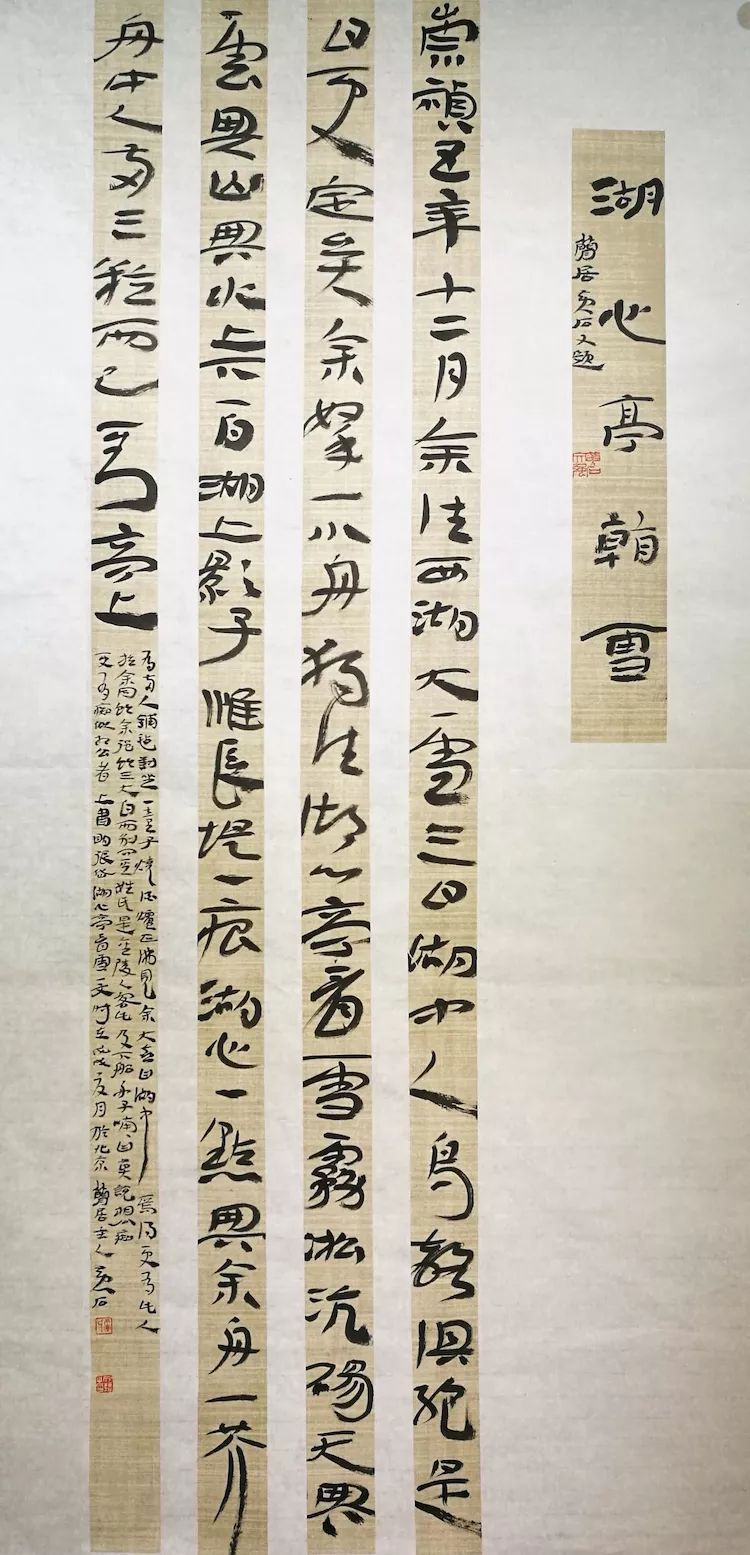 湖心亭看雪
居 石又題
崇禎五年十二月余住西湖大雪三日湖中人鳥聲俱絕是
日更定矣余拏一小舟獨往湖心亭看雪霧凇沆碭天與
雲與山與水上下一白湖上影子惟長堤一痕湖心一點與余舟一芥
舟中人兩三粒而已到亭上
有兩人鋪氈對坐一童子燒酒爐正沸見余大喜曰湖中焉得更有此人
拉余同飲余強飲三大白而別問其姓氏是金陵人客此及下船舟子喃喃曰莫說相公痴
更有痴似相公者上書明張岱湖心亭看雪一文時在 夏月於北京 居主人 石